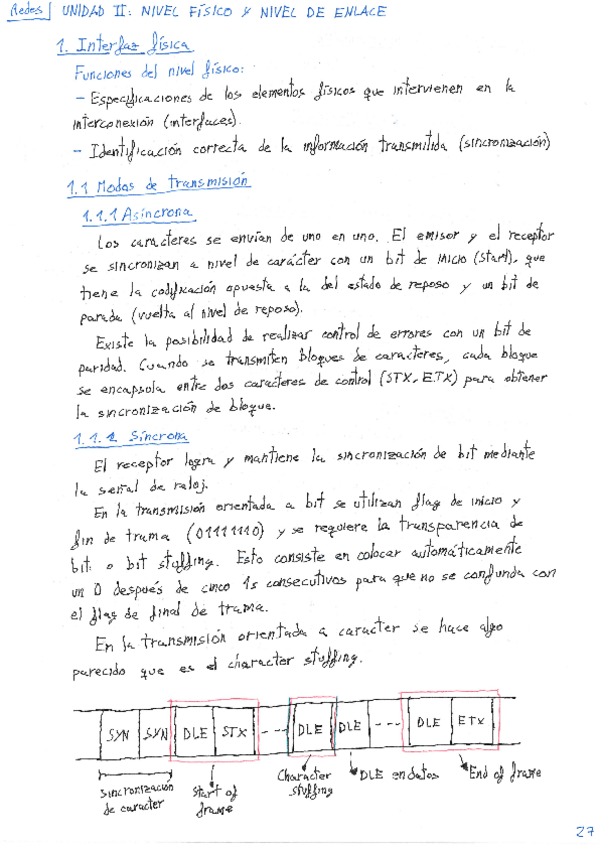 Redes | UNIDAD II: NIVEL FÍSICO Y NIVEL DE ENLACE
1. Interfaz física
Funciones del nivel físico:
- Especificaciones de los elementos físicos que intervienen en la
interconexión (interfaces).
- Identificación correcta de la información transmitida (sincronización)
1.1 Modos de transmisión
1.1.1 Asíncrona
Los caracteres se envían de uno en uno. El emisor y el receptor
se sincronizan a nivel de carácter con un bit de inicio (start), que
tiene la codificación opuesta a la del estado de reposo y un bit de
parada (vuelta al nivel de reposo).
Existe la posibilidad de realizar control de errores con un bit de
paridad. Cuando se transmiten bloques de caracteres, cada bloque
se encapsula entre dos caracteres de control (STX, ETX) para obtener
la sincronización de bloque.
1.1.2 Síncrona
El receptor logra y mantiene la sincronización de bit mediante
la señal de reloj.
En la transmisión orientada a bit se utilizan flag de inicio y
fin de trama (01111110) y se requiere la transparencia de
bit: o bit stuffing. Esto consiste en colocar automáticamente
un 0 después de cinco 1s consecutivos para que no se confunda con
el flag de final de trama.
En la transmisión orientada a caracter se hace algo
parecido que es el character stuffing.
SYN SYN DLE STX --- DLE DLE --- DLE ETX
Sincronización de caracter
Start of frame
Character stuffing
DLE en datos
End of frame
27